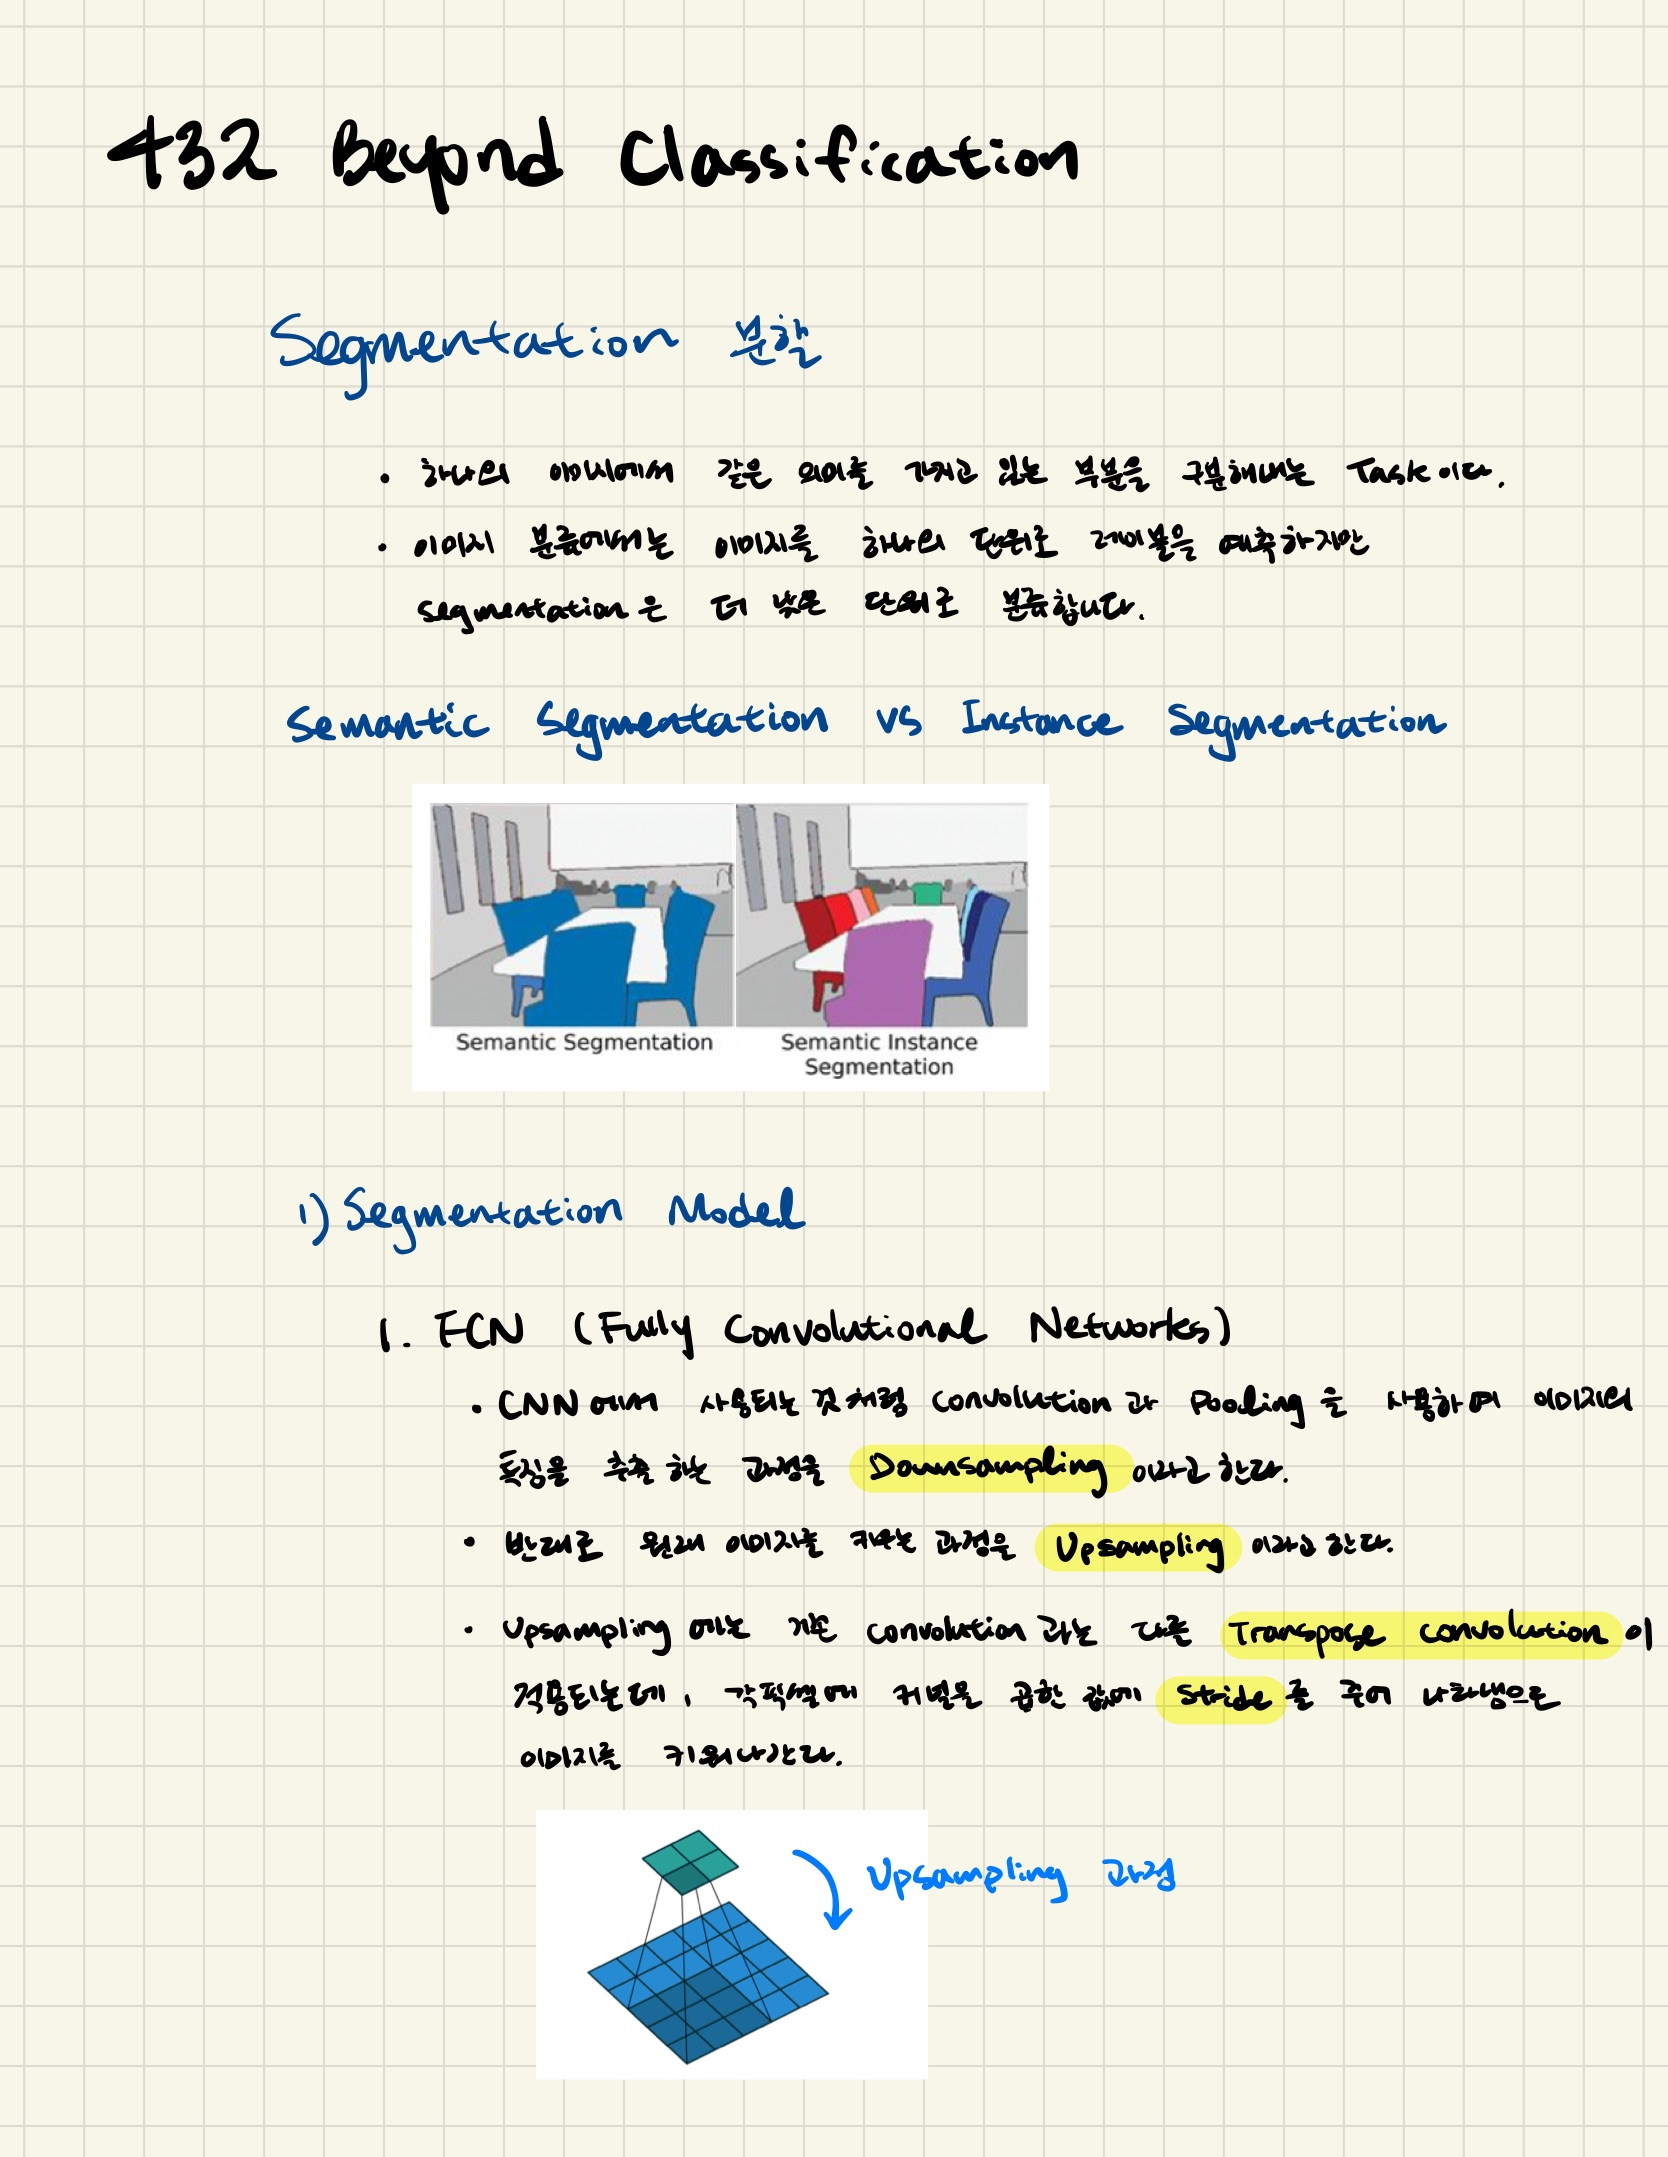 432 Beyond Classification
Segmentation 분할
• 하나의 이미지에서 같은 의미를 가지고 있는 부분을 구분해내는 Task이다.
• 이미지 분류에서는 이미지를 하나의 단위로 레이블을 예측하지만
segmentation은 더 낮은 단위로 분류합니다.
Semantic Segmentation vs Instance Segmentation
Semantic Segmentation
Semantic Instance
Segmentation
1) Segmentation Model
1. FCN (Fully Convolutional Networks)
• CNN에서 사용되는 것처럼 convolution과 Pooling을 사용하여 이미지의
특징을 추출하는 과정을 Downsampling이라고 한다.
• 반대로 원래 이미지를 키우는 과정을 Upsampling이라고 한다.
• Upsampling에는 기존 convolution과는 다른 Transpose convolution이
적용되는데, 각 픽셀에 커널을 곱한 값에 Stride를 주어 나타냄으로
이미지를 키워나간다.
Upsampling 과정